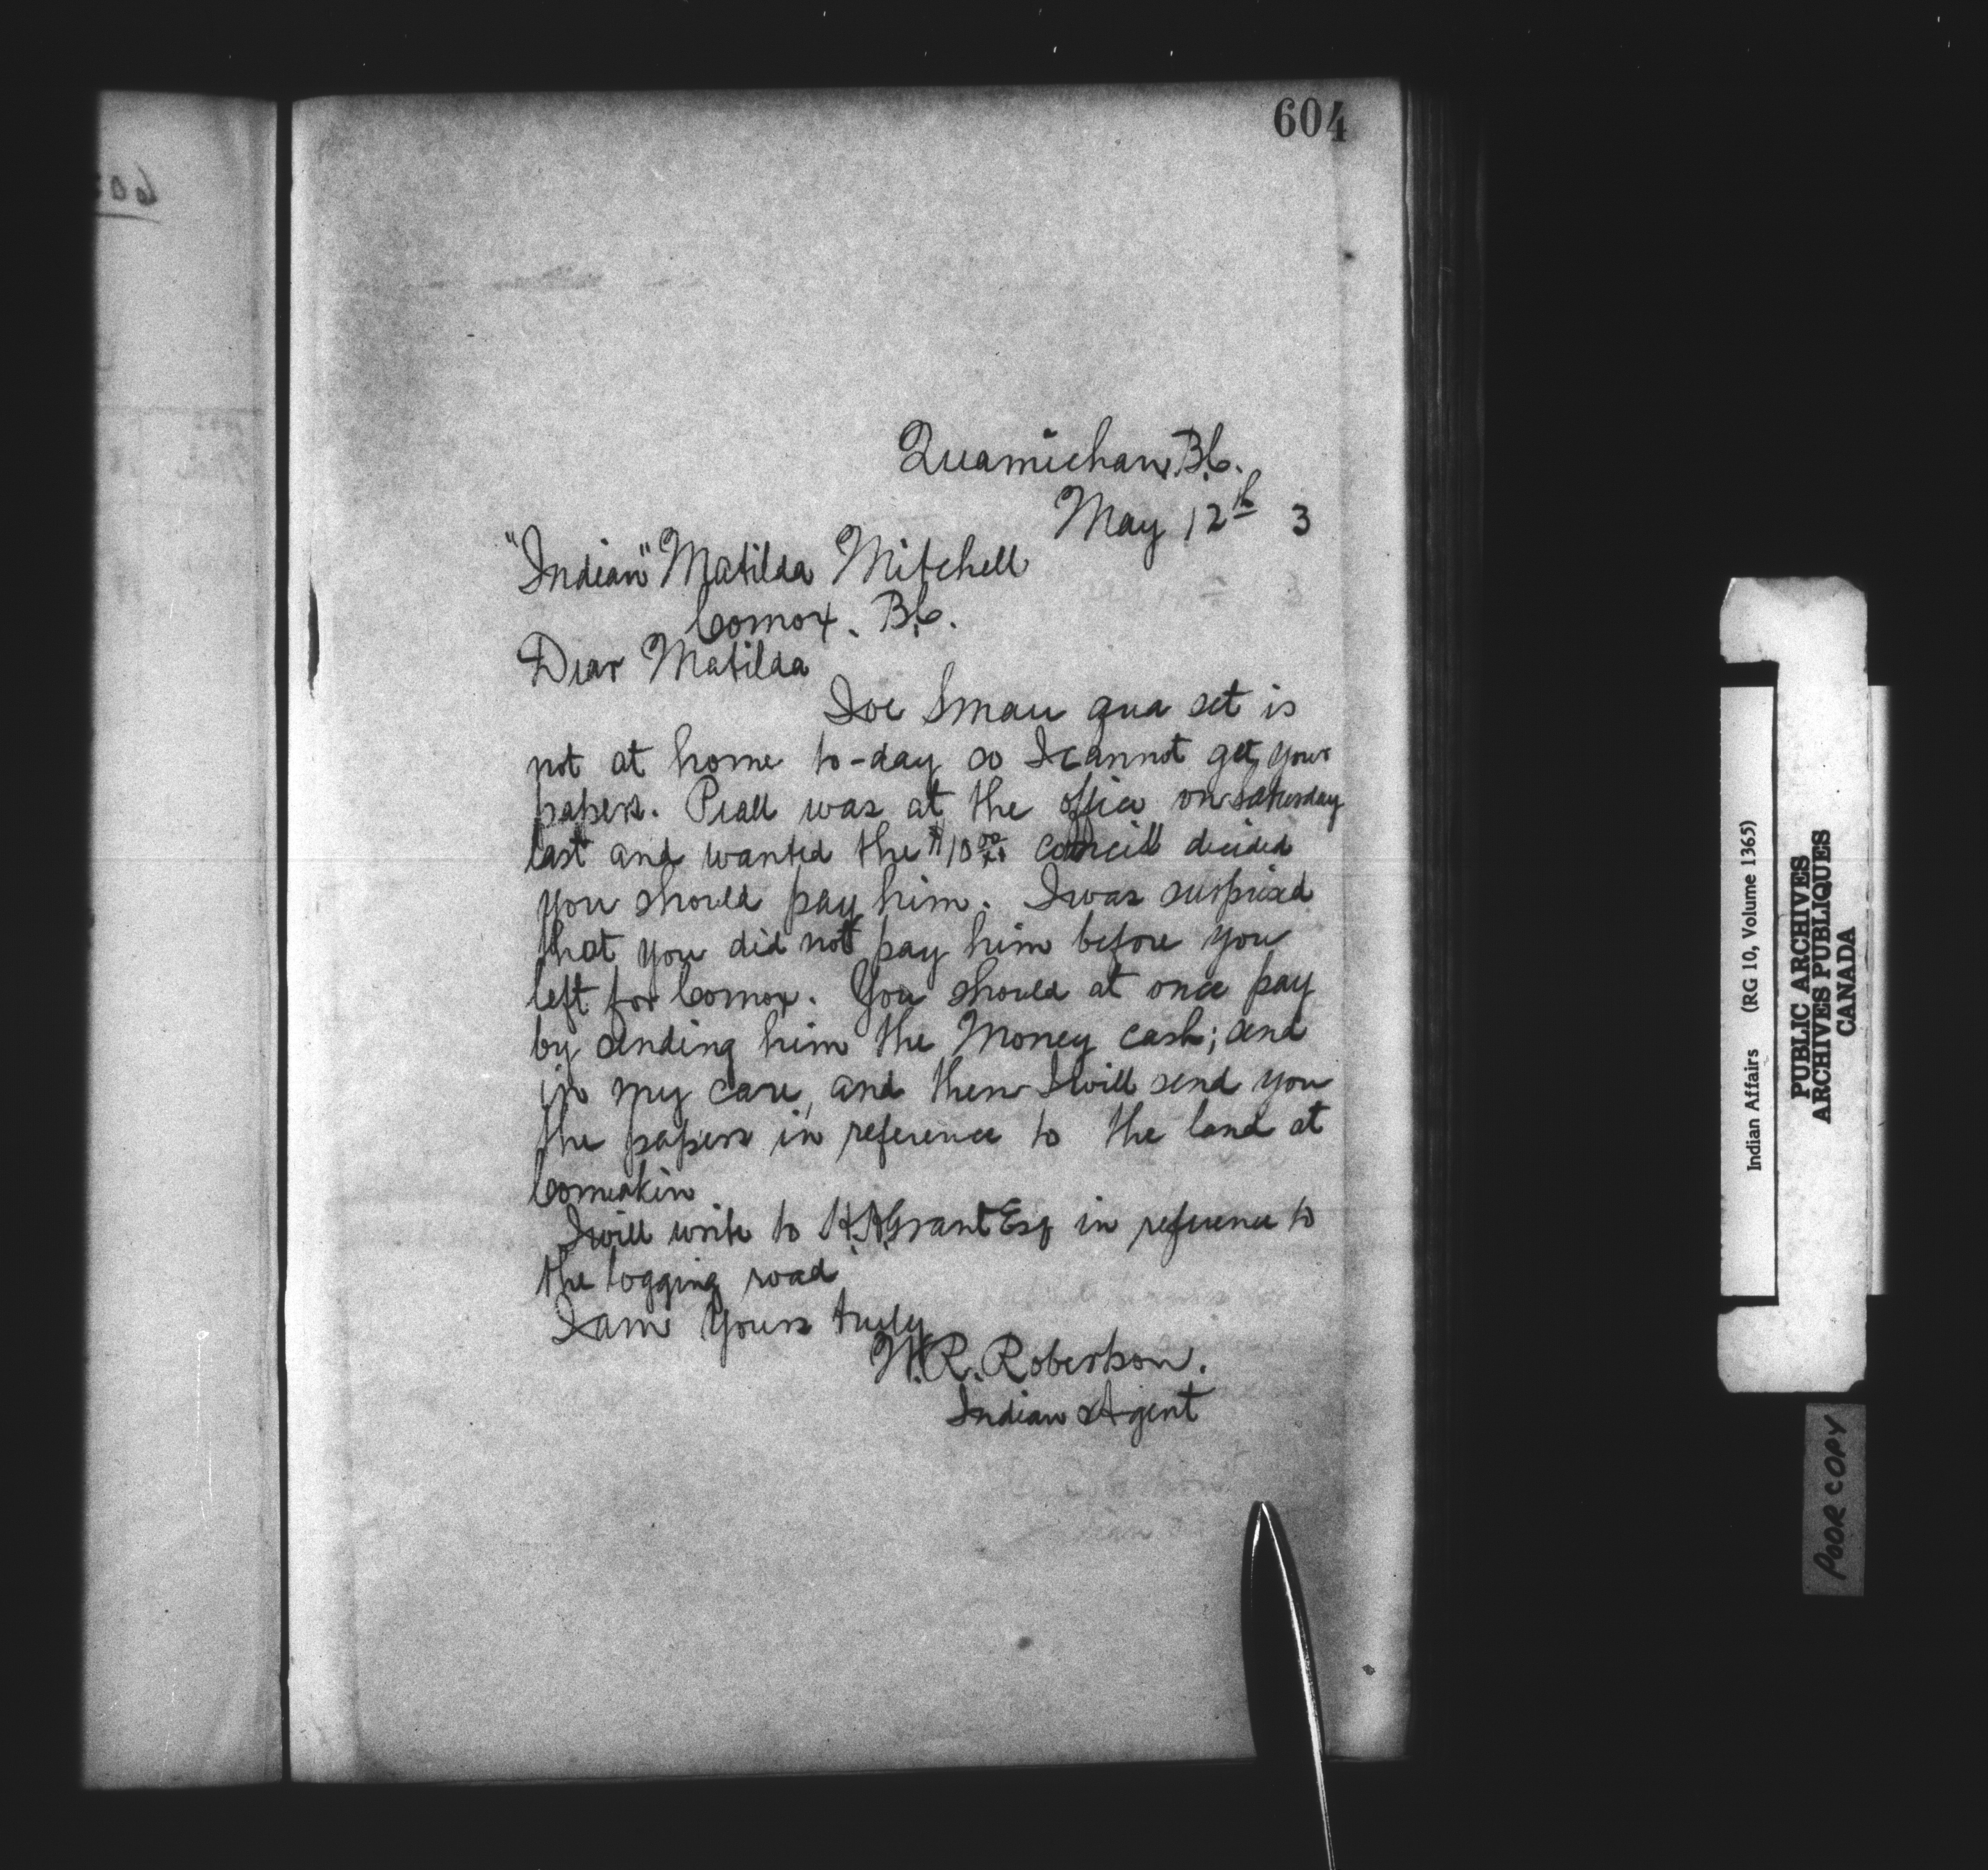 604
Quamichan, B.C.
May 12th 3
"Indian" Matilda Mitchell
Comox. B.C.
Dear Matilda
Joe Smau qua set is
not at home to-day so I cannot get your
papers. Peall was at the office on Saturday
last and wanted the $10 00/xx Councill decided
you should pay him. I was surprised
that you did not pay him before you
left for Comox. You should at once pay
by sending him the Money cash; send
in my care, and then I will send you
the papers in reference to the land at
Comeakin
I will write to H.A. Grant Esq in reference to
the logging road
I am Yours truly
W.R. Robertson.
Indian Agent
Indian Affairs (RG 10, Volume 1365)
PUBLIC ARCHIVES
ARCHIVES PUBLIQUES
CANADA
POOR COPY